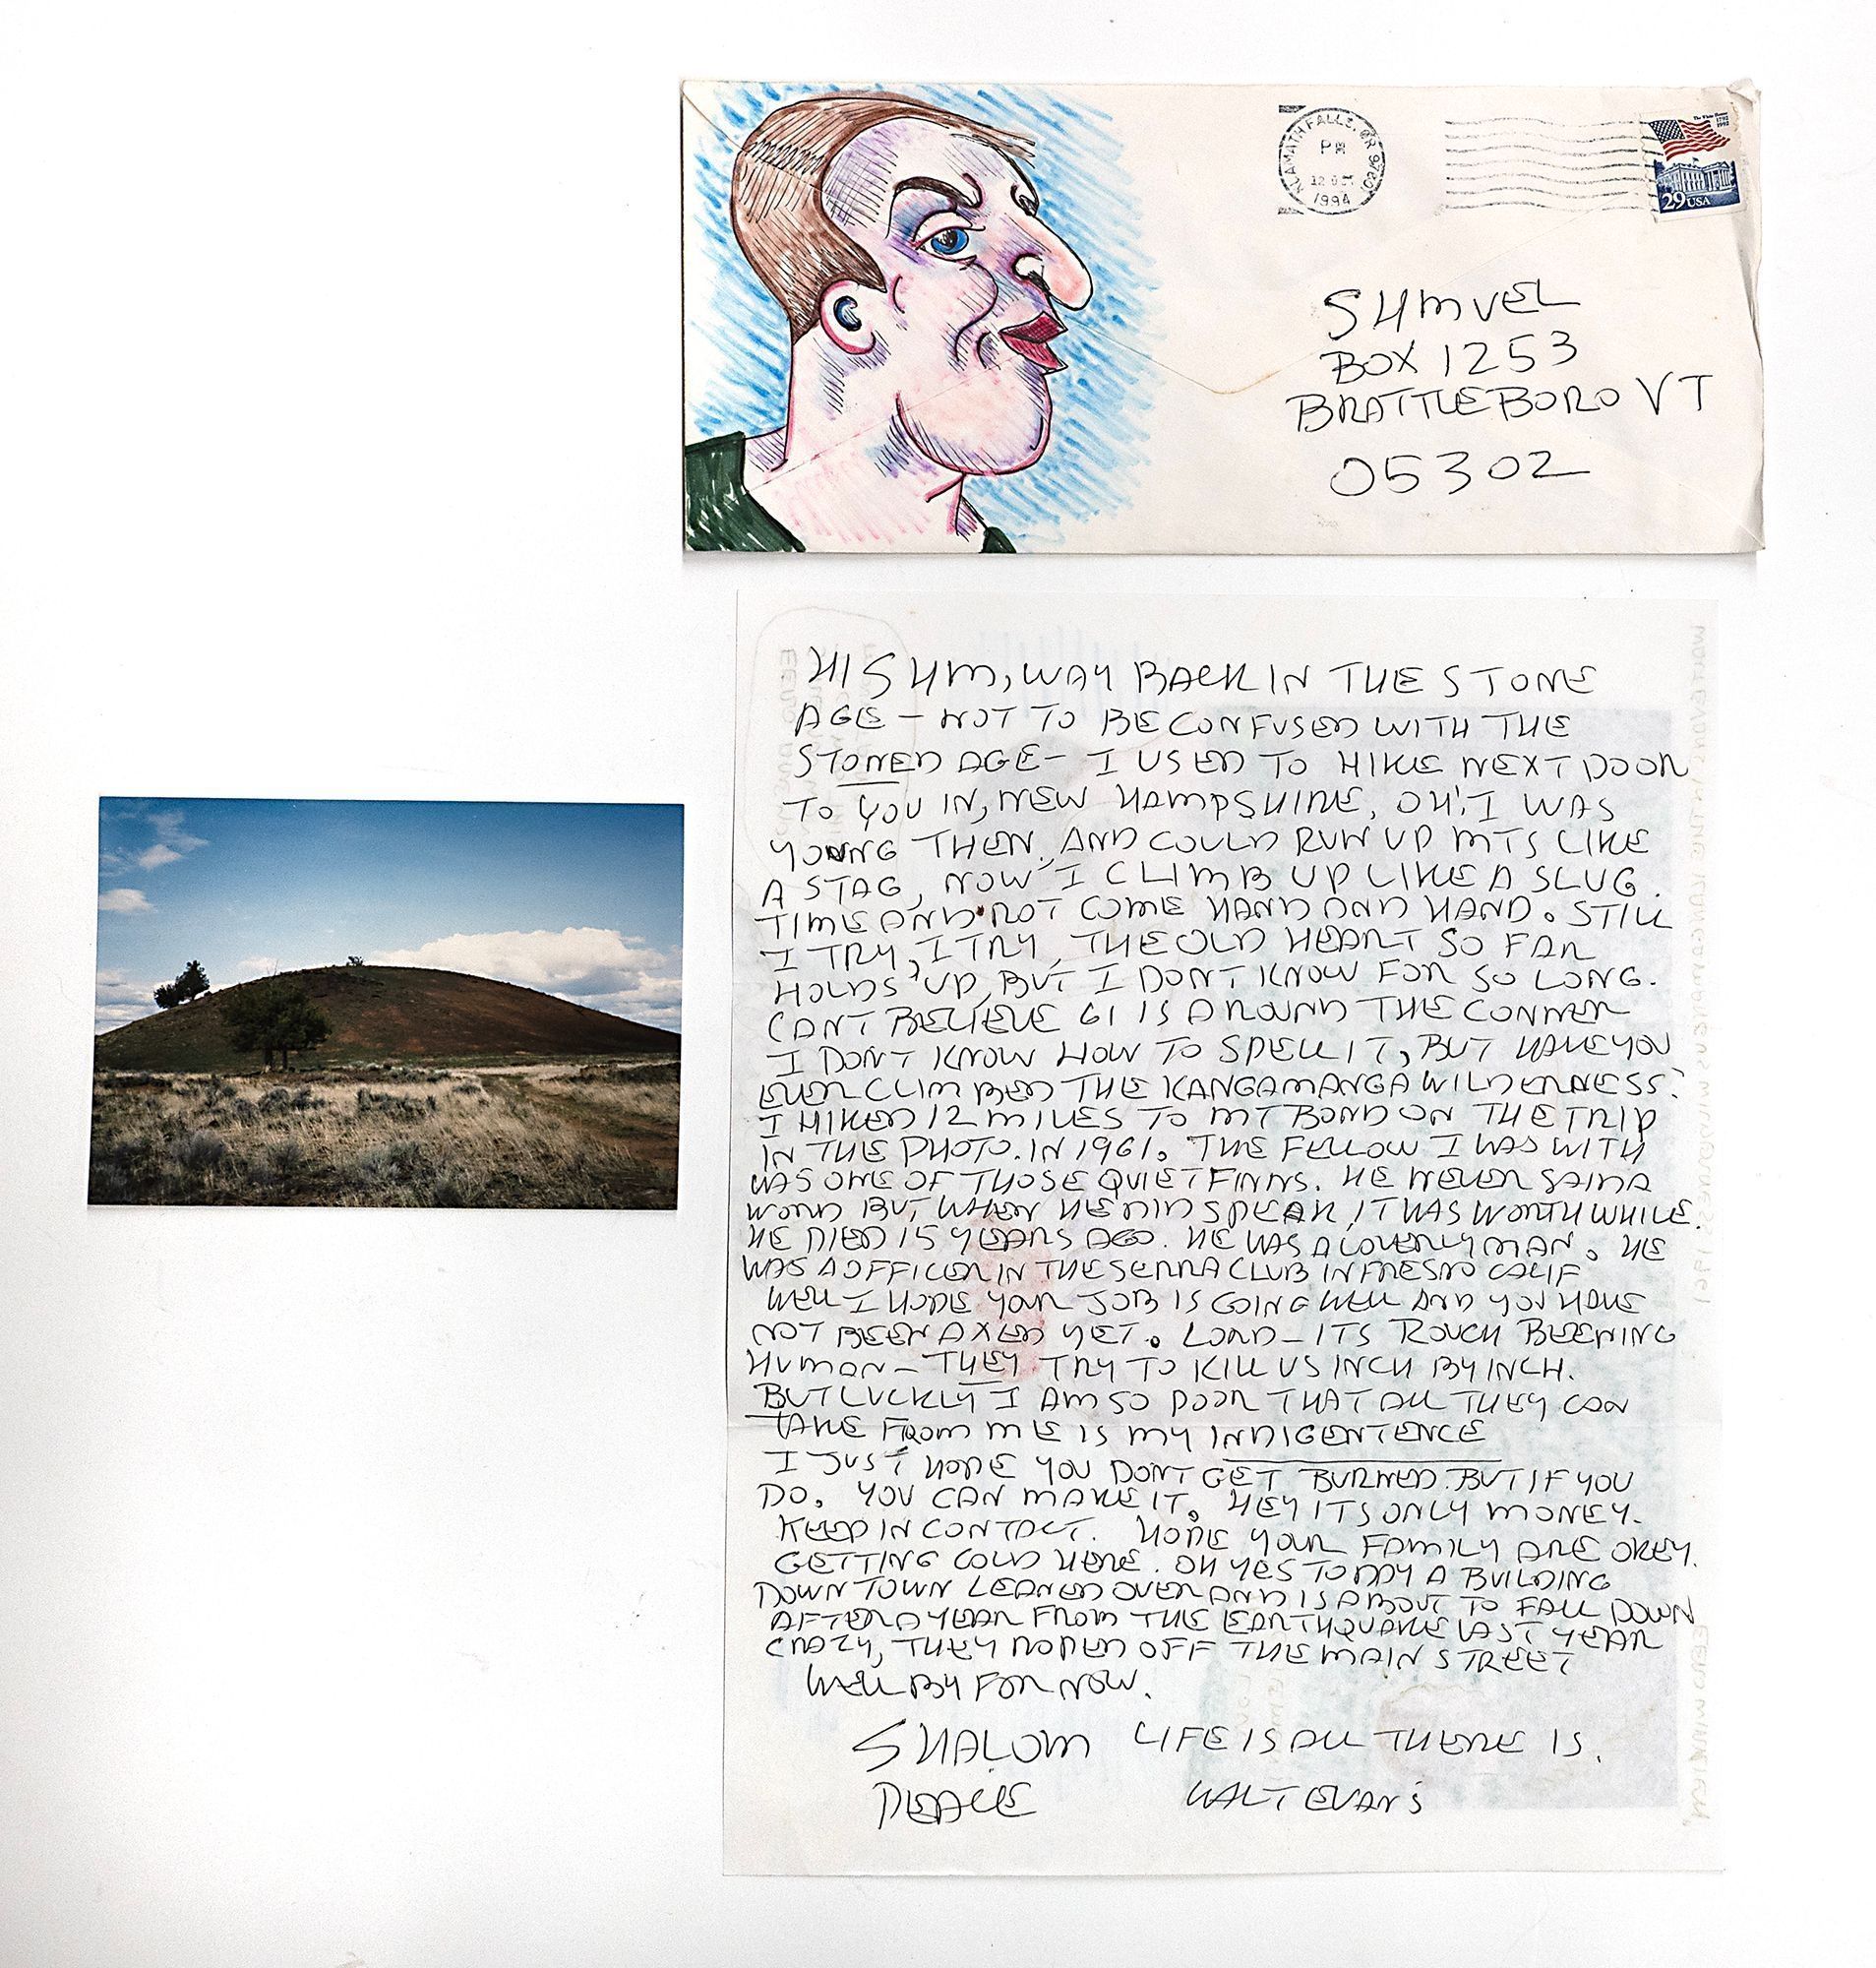 KLAMATH FALLS, OR 97601
PM
12 OCT
1994
The White House
1792
1992
29 USA
SHMUEL
BOX 1253
BRATTLEBORO VT
05302
HI SHM, WAY BACK IN THE STONE
AGE – NOT TO BE CONFUSED WITH THE
STONED AGE – I USED TO HIKE NEXT DOOR
TO YOU IN, NEW HAMPSHIRE, OH! I WAS
YOUNG THEN, AND COULD RUN UP MTS LIKE
A STAG, NOW I CLIMB UP LIKE A SLUG.
TIME AND ROT COME HAND AND HAND. STILL
I TRY, I TRY, THE OLD HEART SO FAR
HOLDS UP, BUT I DONT KNOW FOR SO LONG.
CANT BELIEVE 61 IS AROUND THE CORNER
I DONT KNOW HOW TO SPELL IT, BUT HAVE YOU
EVER CLIMBED THE KANGAMANGA WILDERNESS?
I HIKED 12 MILES TO MT BOND ON THE TRIP
IN THE PHOTO. IN 1961. THE FELLOW I WAS WITH
WAS ONE OF THOSE QUIET FINNS. HE NEVER SAID A
WORD BUT WHEN HE DID SPEAK IT WAS WORTH WHILE.
HE DIED 15 YEARS AGO. HE WAS A LOVERLY MAN. HE
WAS A OFFICER IN THE SERRA CLUB IN FRESNO CALIF
WELL I HOPE YOUR JOB IS GOING WELL AND YOU HAVE
NOT BEEN AXED YET. LORD – ITS ROUGH BEENING
HUMON – THEY TRY TO KILL US INCH BY INCH.
BUT LUCKLY I AM SO POOR THAT ALL THEY CAN
TAKE FROM ME IS MY INDIGENTENCE
I JUST HOPE YOU DONT GET BURNED. BUT IF YOU
DO. YOU CAN MAKE IT. HEY ITS ONLY MONEY.
KEEP IN CONTACT. HOPE YOUR FAMILY ARE OKEY.
GETTING COLD HERE. OH YES TODAY A BUILDING
DOWN TOWN LEANED OVER AND IS ABOUT TO FALL DOWN
AFTER A YEAR FROM THE EARTHQUAKE LAST YEAR
CRAZY, THEY ROPED OFF THE MAIN STREET
WELL BY FOR NOW.
SHALOM LIFE IS ALL THERE IS.
PEACE WALT EVANS